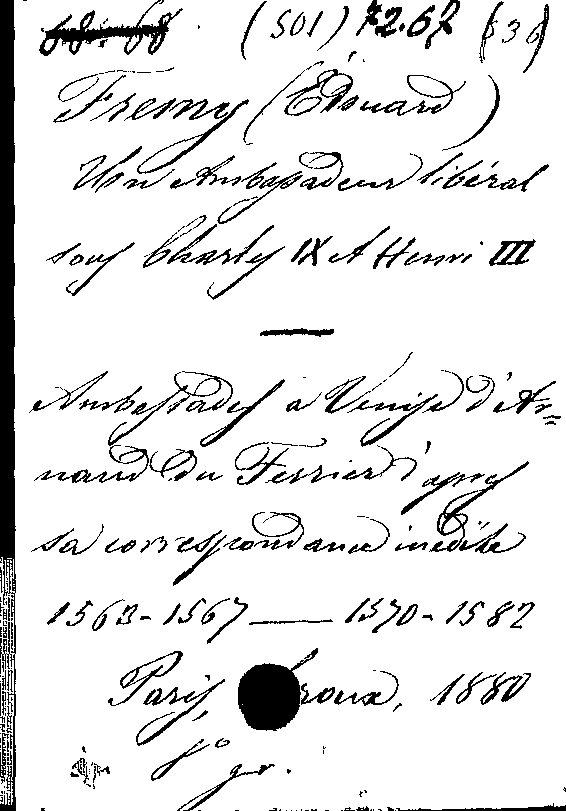 (501) 72.67 (36)
Fremy (Édouard)
Un Ambassadeur libéral
sous Charles IX et Henri III
Ambassades à Venise d'Ar=
naud Du Ferrier d'après
sa correspondance inédite
1563-1567 — 1570-1582
Paris, roux, 1880
8°
gr.